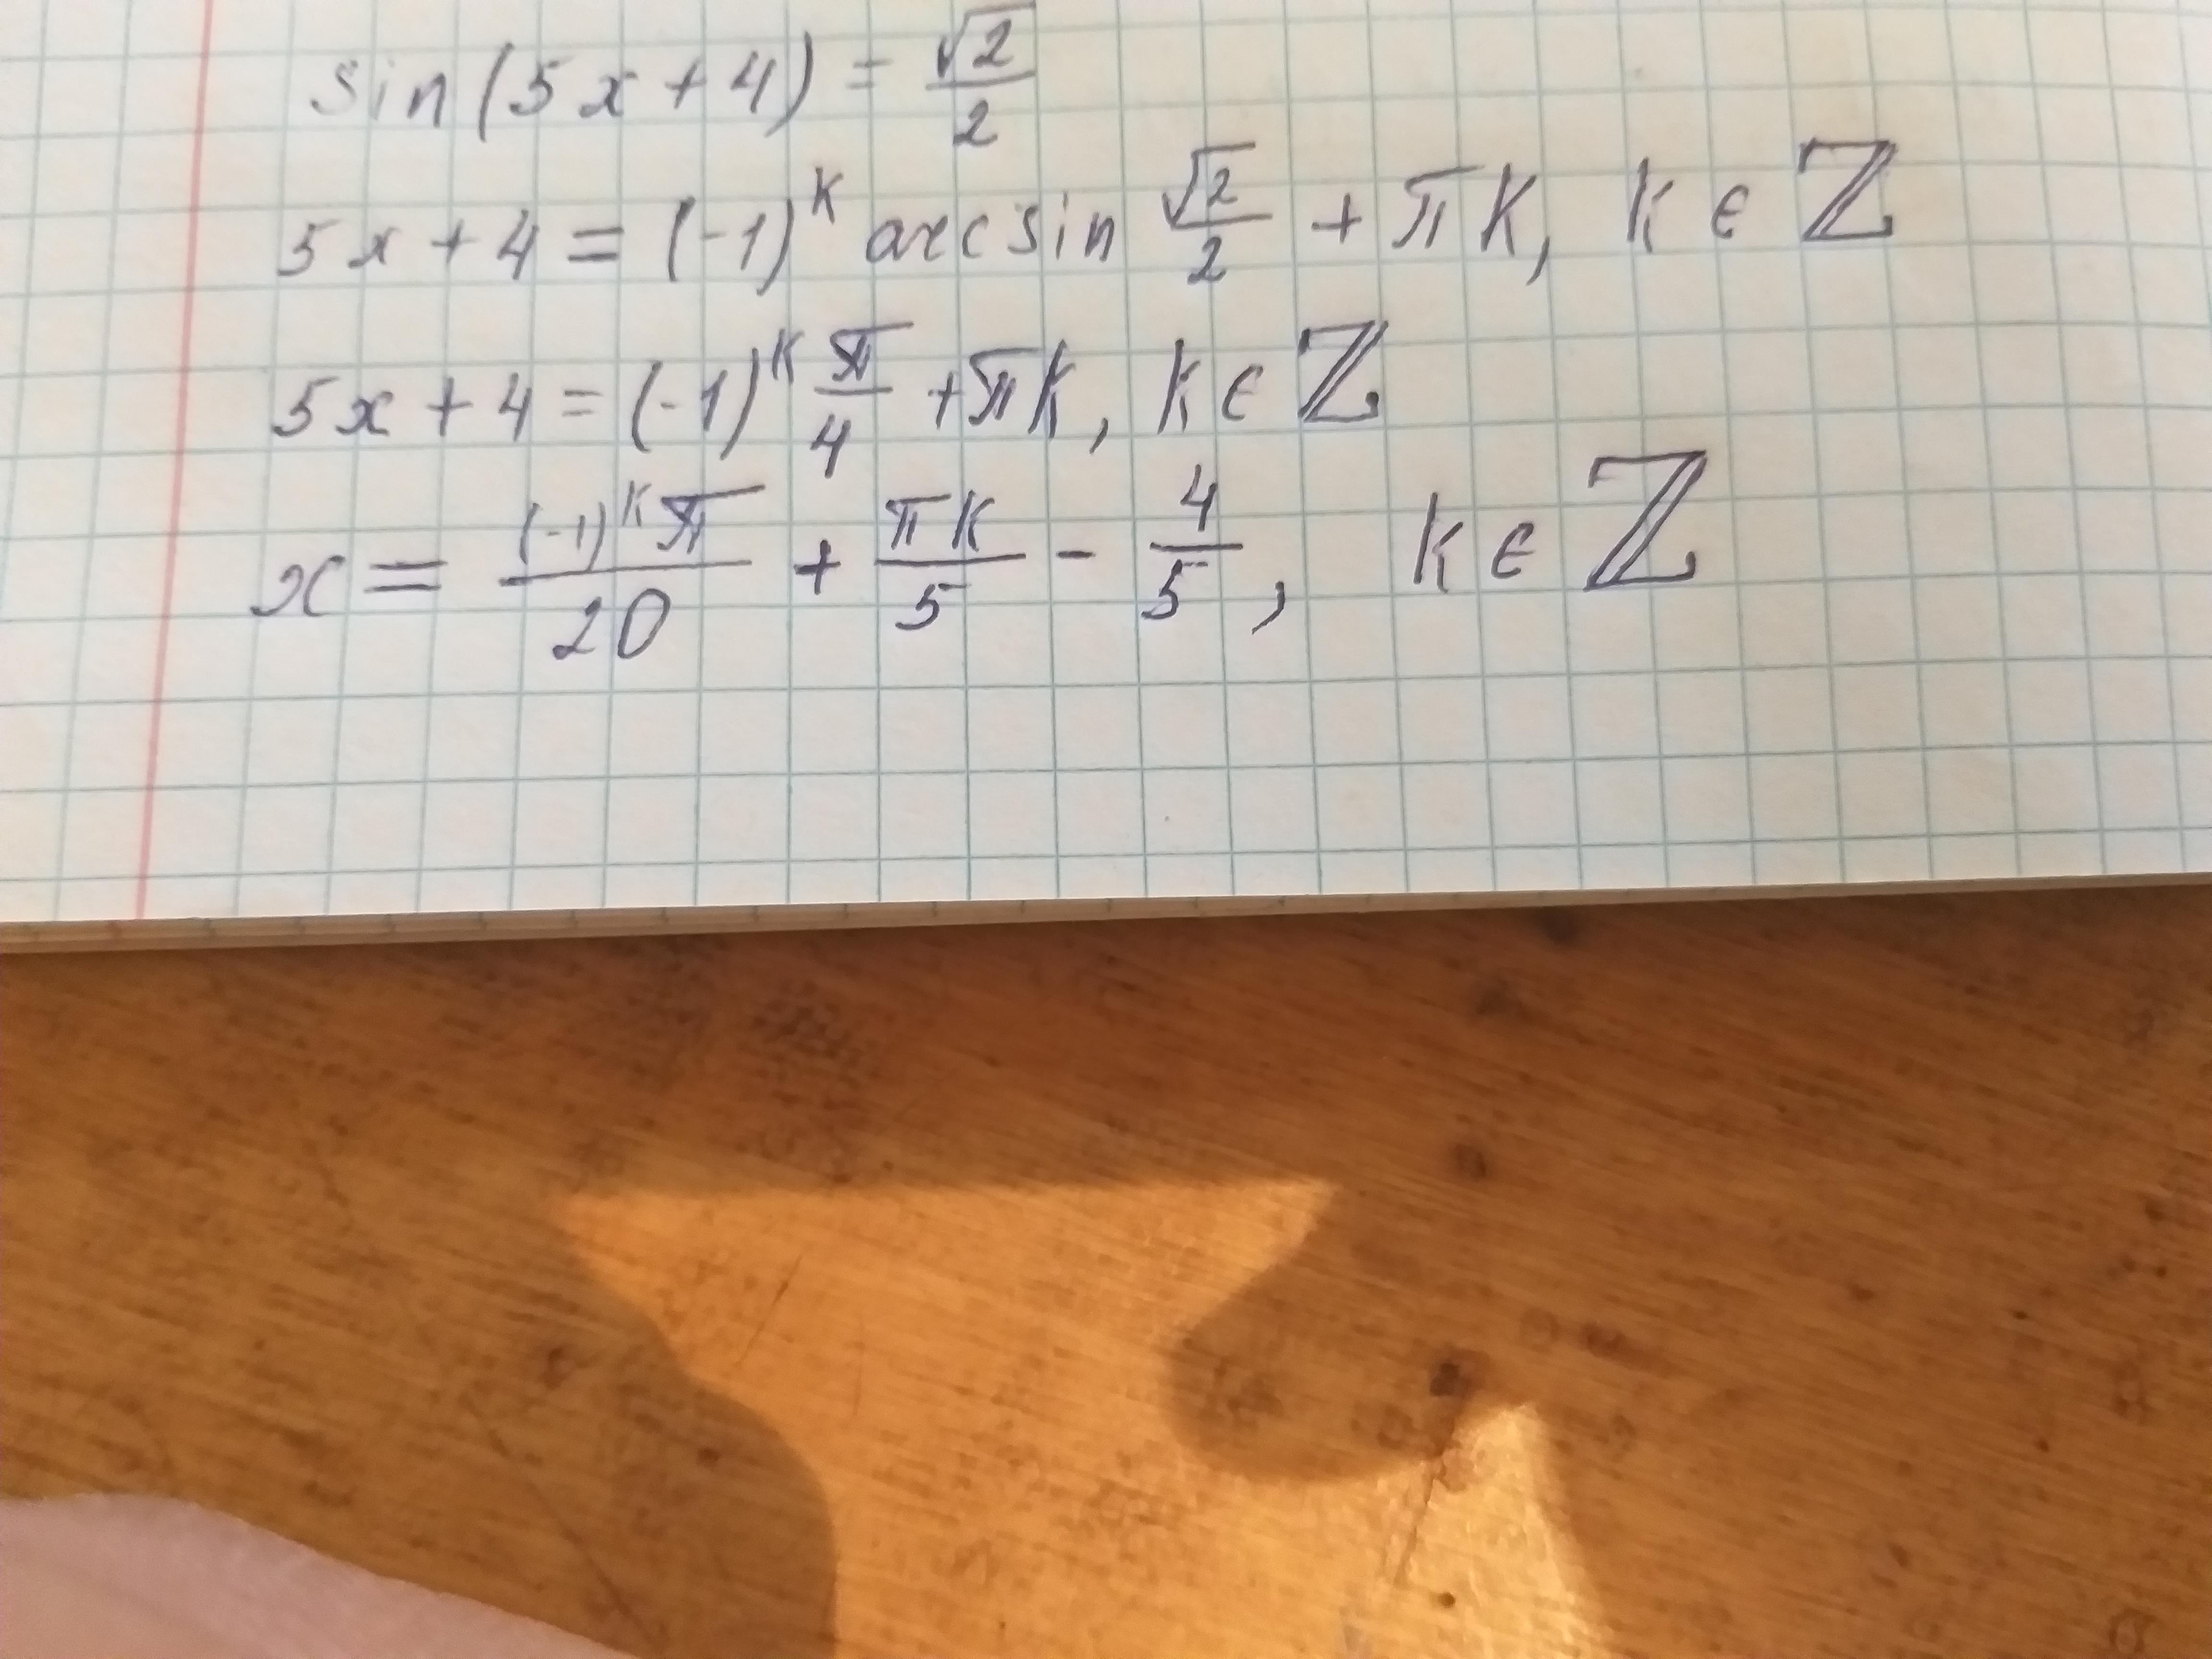 sin(5x+4) = √2/2
5x+4 = (-1)^k arcsin √2/2 + πk, k ∈ ℤ
5x+4 = (-1)^k π/4 + πk, k ∈ ℤ
x = (-1)^k π/20 + πk/5 - 4/5, k ∈ ℤ